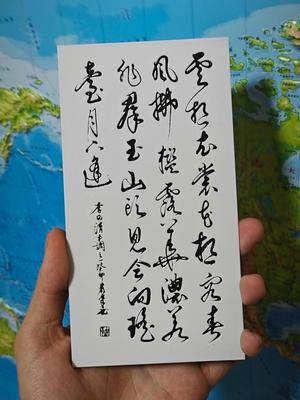 雲想衣裳花想容春
風拂檻露華濃若
非羣玉山頭見會向瑤
臺月下逢
李白清平調